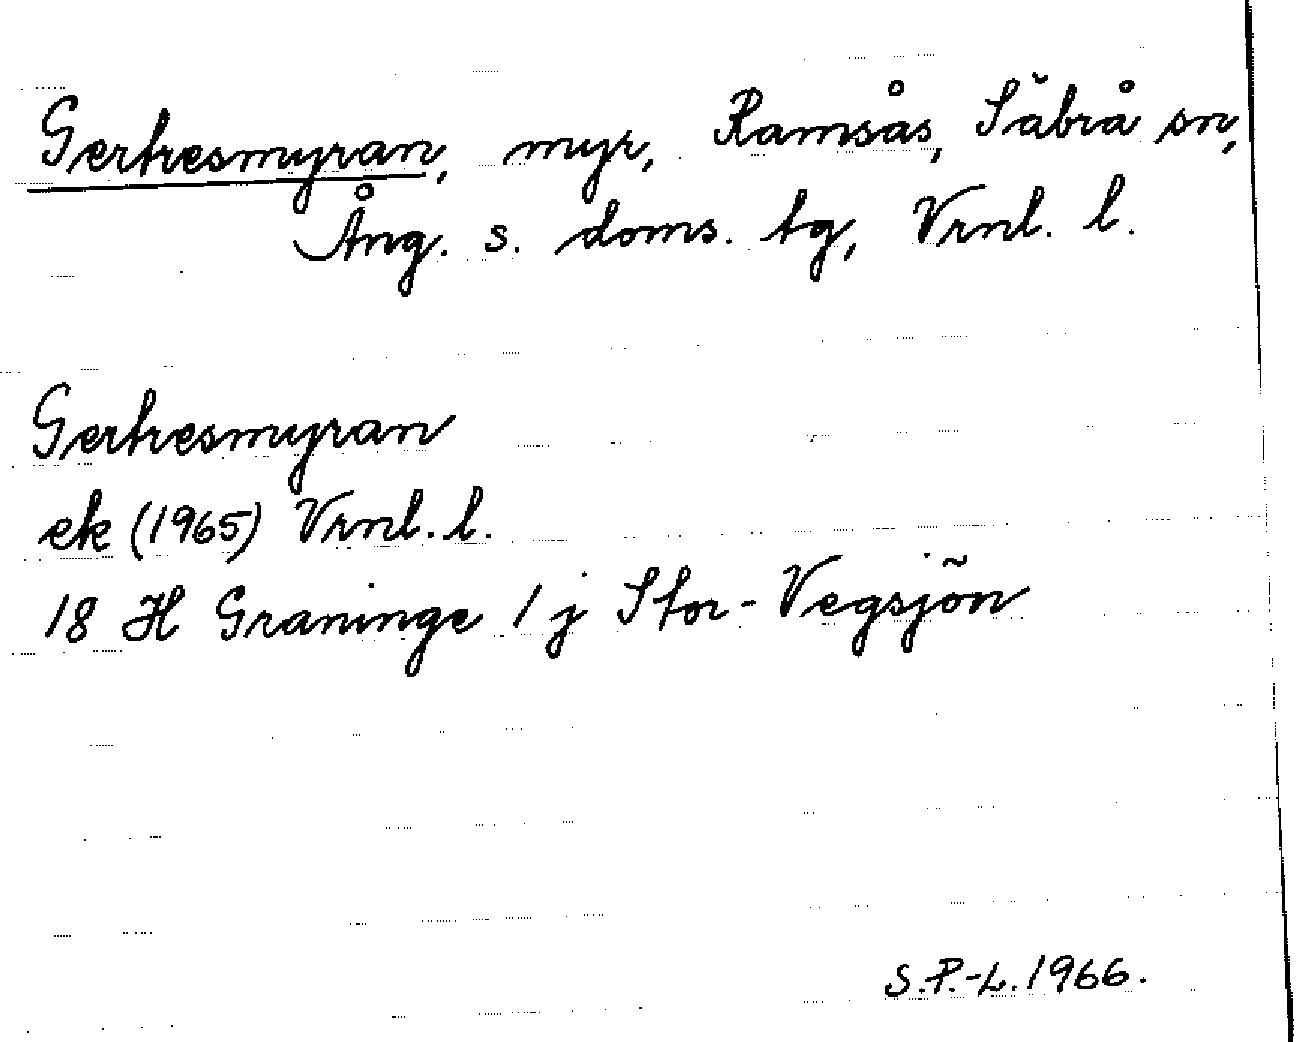 Gertresmyran, myr, Ramsås, Säbrå sn,
Ång. s. doms. tg, Vrnl. l.
Gertresmyran
ek (1965) Vrnl. l.
18 H Graninge 1 j Stor-Vegsjön
S.P.-L. 1966.